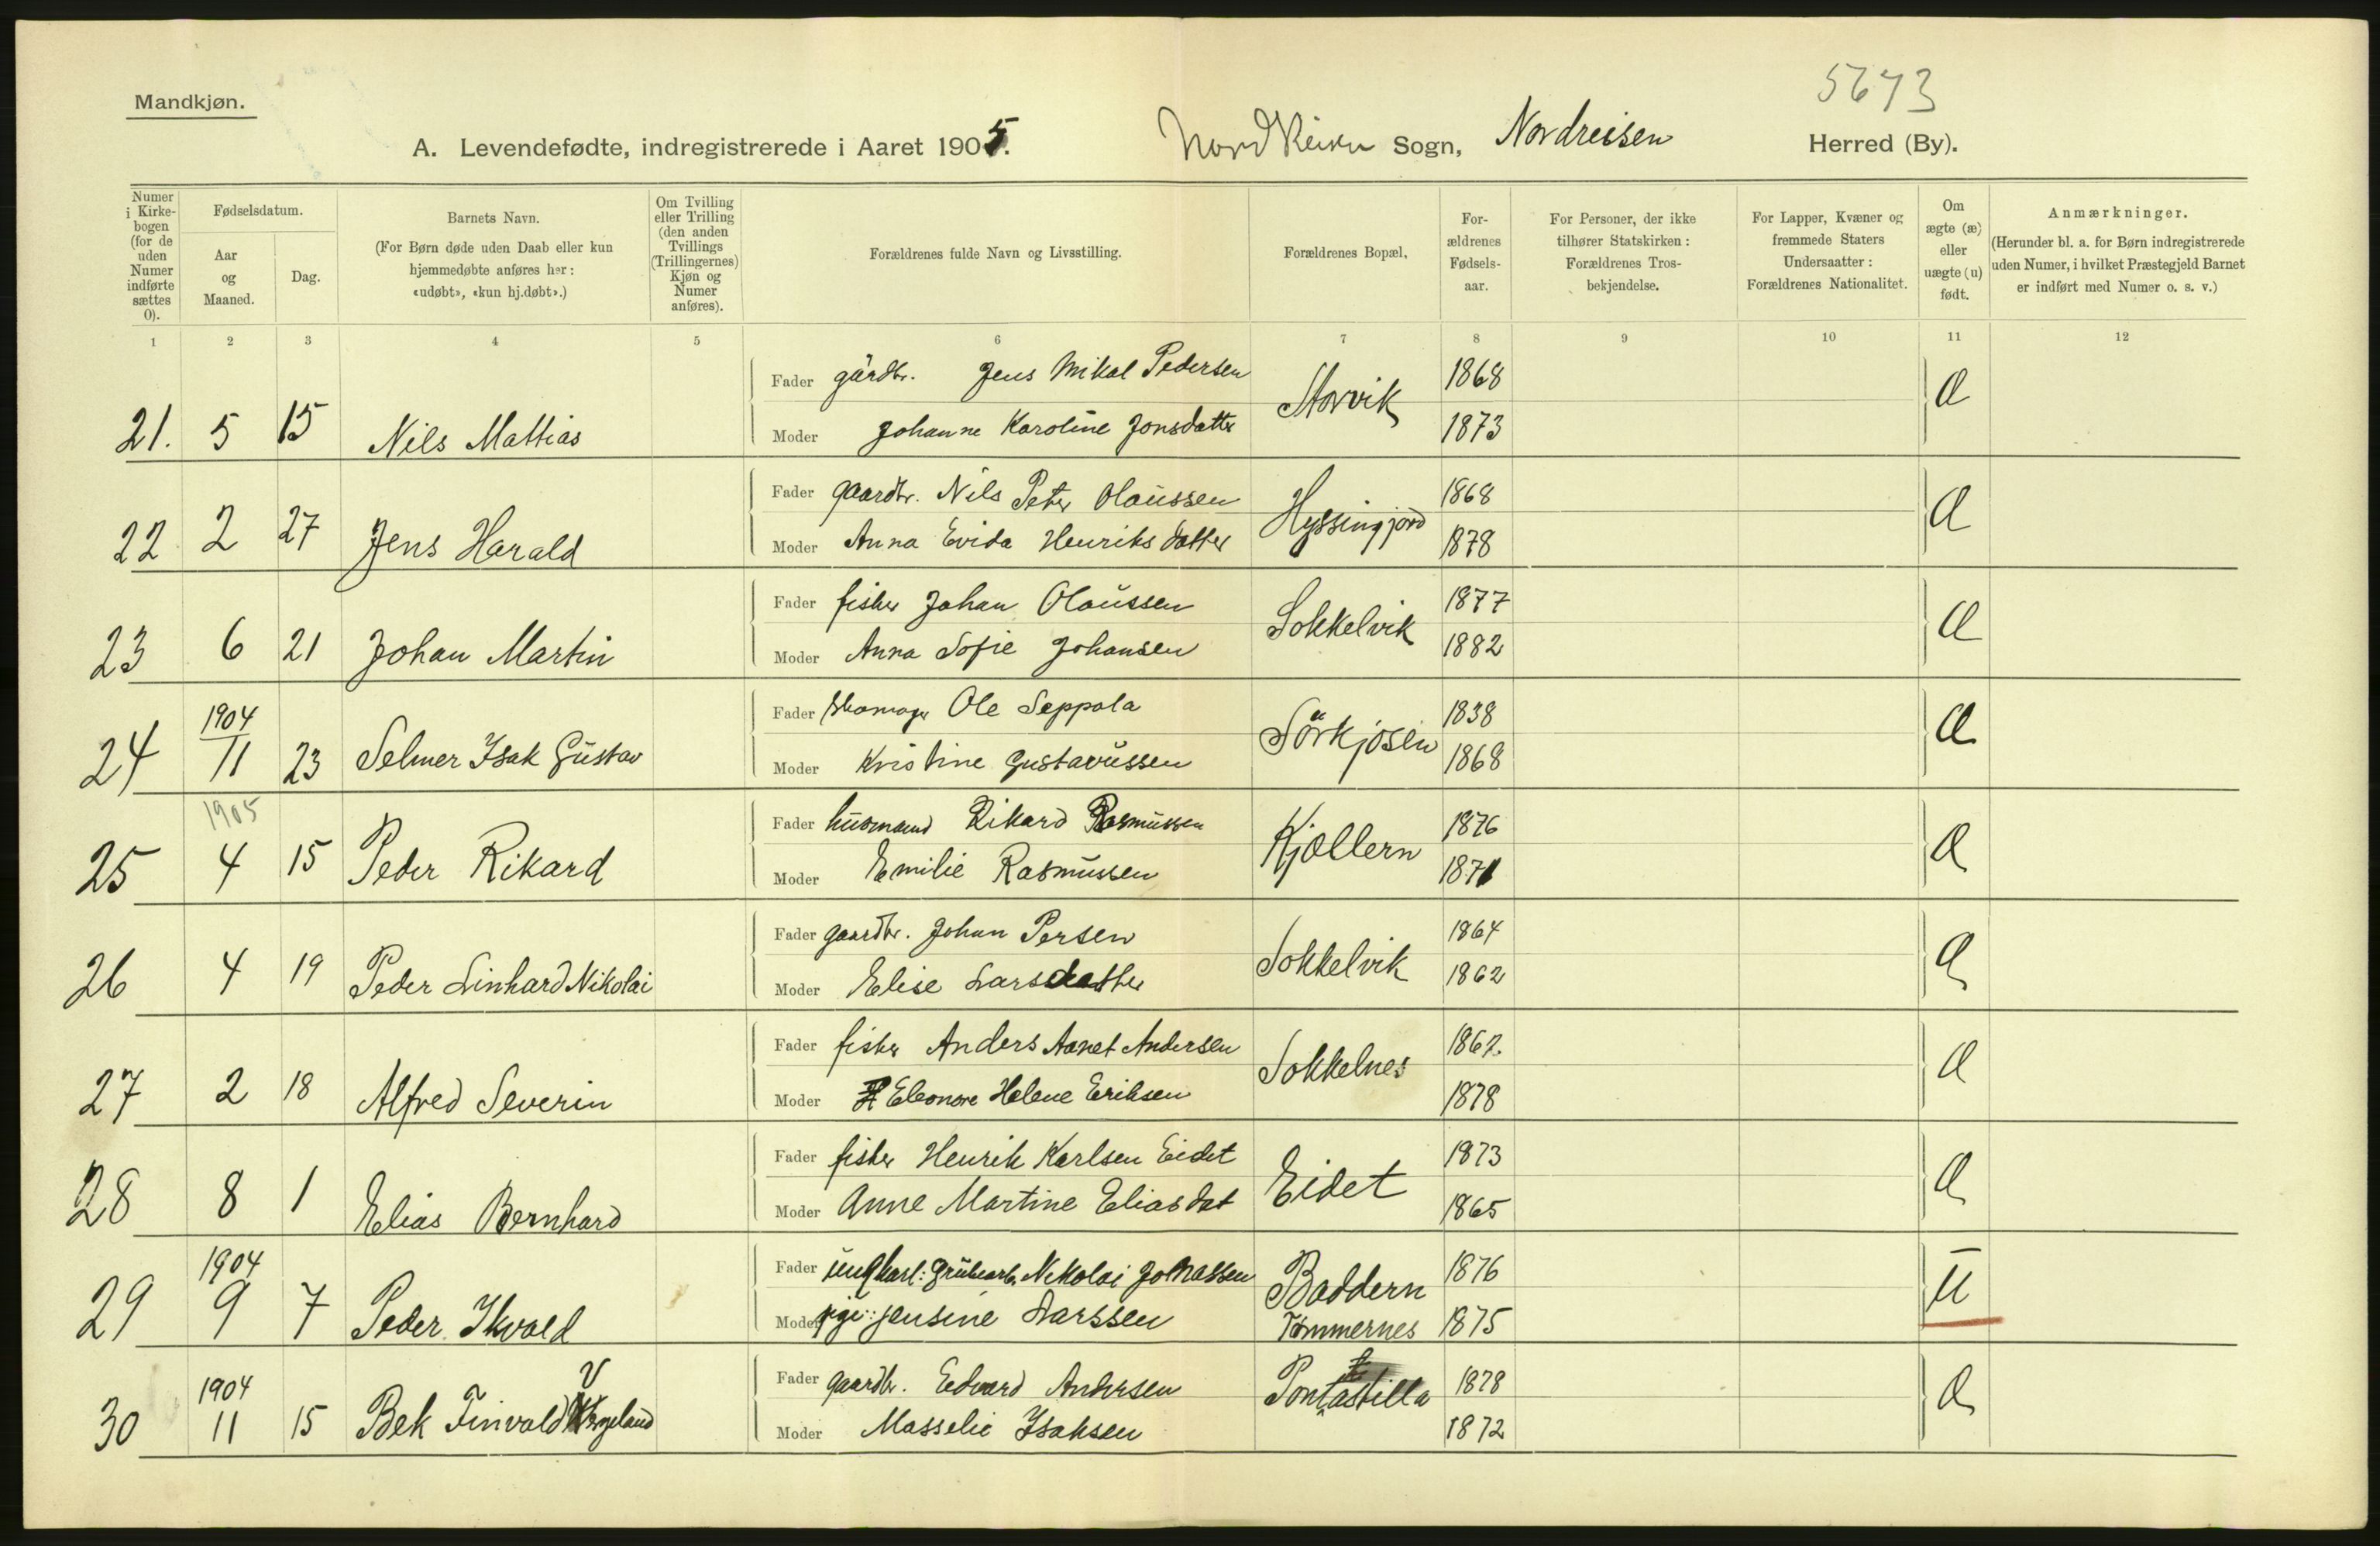 5673
Mandkjøn.
A. Levendefødte, indregistrerede i Aaret 1905. Nordreisen Sogn, Nordreisen Herred (By).
Numer i Kirkebogen (for de uden Numer indførte sættes 0).
Fødselsdatum.
Aar og Maaned.
Dag.
Barnets Navn.
(For Børn døde uden Daab eller kun hjemmedøbte anføres her: «udøbt», «kun hj.døbt».)
Om Tvilling eller Trilling (den anden Tvillings (Trillingernes) Kjøn og Numer anføres).
Forældrenes fulde Navn og Livsstilling.
Forældrenes Bopæl,
Forældrenes Fødselsaar.
For Personer, der ikke tilhører Statskirken: Forældrenes Trosbekjendelse.
For Lapper, Kvæner og fremmede Staters Undersaatter: Forældrenes Nationalitet.
Om ægte (æ) eller uægte (u) født.
Anmærkninger.
(Herunder bl. a. for Børn indregistrerede uden Numer, i hvilket Præstegjeld Barnet er indført med Numer o. s. v.)
1 2 3 4 5 6 7 8 9 10 11 12
21. 5 15 Nils Mattias
Fader gårdbr. Jens Mikal Pedersen Storvik 1868 Æ
Moder Johanne Karoline Jonsdatter 1873
22 2 27 Jens Harald
Fader gaardbr. Nils Peter Olaussen Hyssingjord 1868 Æ
Moder Anna Evida Henriksdatter 1878
23 6 21 Johan Martin
Fader fisker Johan Olaussen Sokkelvik 1877 Æ
Moder Anna Sofie Johansen 1882
24 1904 11 23 Selmer Isak Gustav
Fader skomager Ole Seppola Sörkjosen 1838 Æ
Moder Kristine Gustavussen 1868
25 1905 4 15 Peder Rikard
Fader husmand Rikard Rasmussen Kjöllern 1876 Æ
Moder Emilie Rasmussen 1871
26 4 19 Peder Linhard Nikolai
Fader gaardbr. Johan Persen Sokkelvik 1864 Æ
Moder Elise Larsdatter 1862
27 2 18 Alfred Severin
Fader fisker Anders Aanet Andersen Sokkelnes 1862 Æ
Moder Eleonore Helene Eriksen 1878
28 8 1 Elias Bernhard
Fader fisker Henrik Karlsen Eidet Eidet 1873 Æ
Moder Anne Martine Eliasdat 1865
29 1904 9 7 Peder Ikvald
Fader ungkarl: grubearb. Nikolai Johnassen Baddern 1876 U
Moder pige: Jensine Larssen Tömmernes 1875
30 1904 11 15 Bek Finvald Vergeland
Fader gaardbr. Edvard Andersen Pontastilla 1878 Æ
Moder Masselie Isaksen 1872